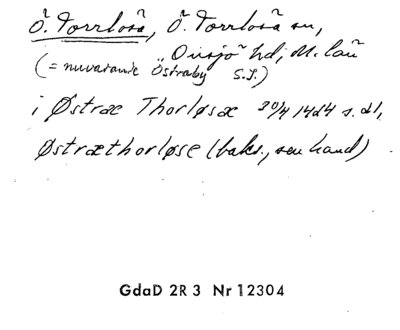 Ö. Torrlösa, Ö. Torrlösa sn,
Onsjö hd, M. län
(= nuvarande Östraby S.S.)
i Østræ Thorløsæ 30/4 1424 s. dl,
Østræthorløse (baks., sen hand)
GdaD 2R3 Nr 12304